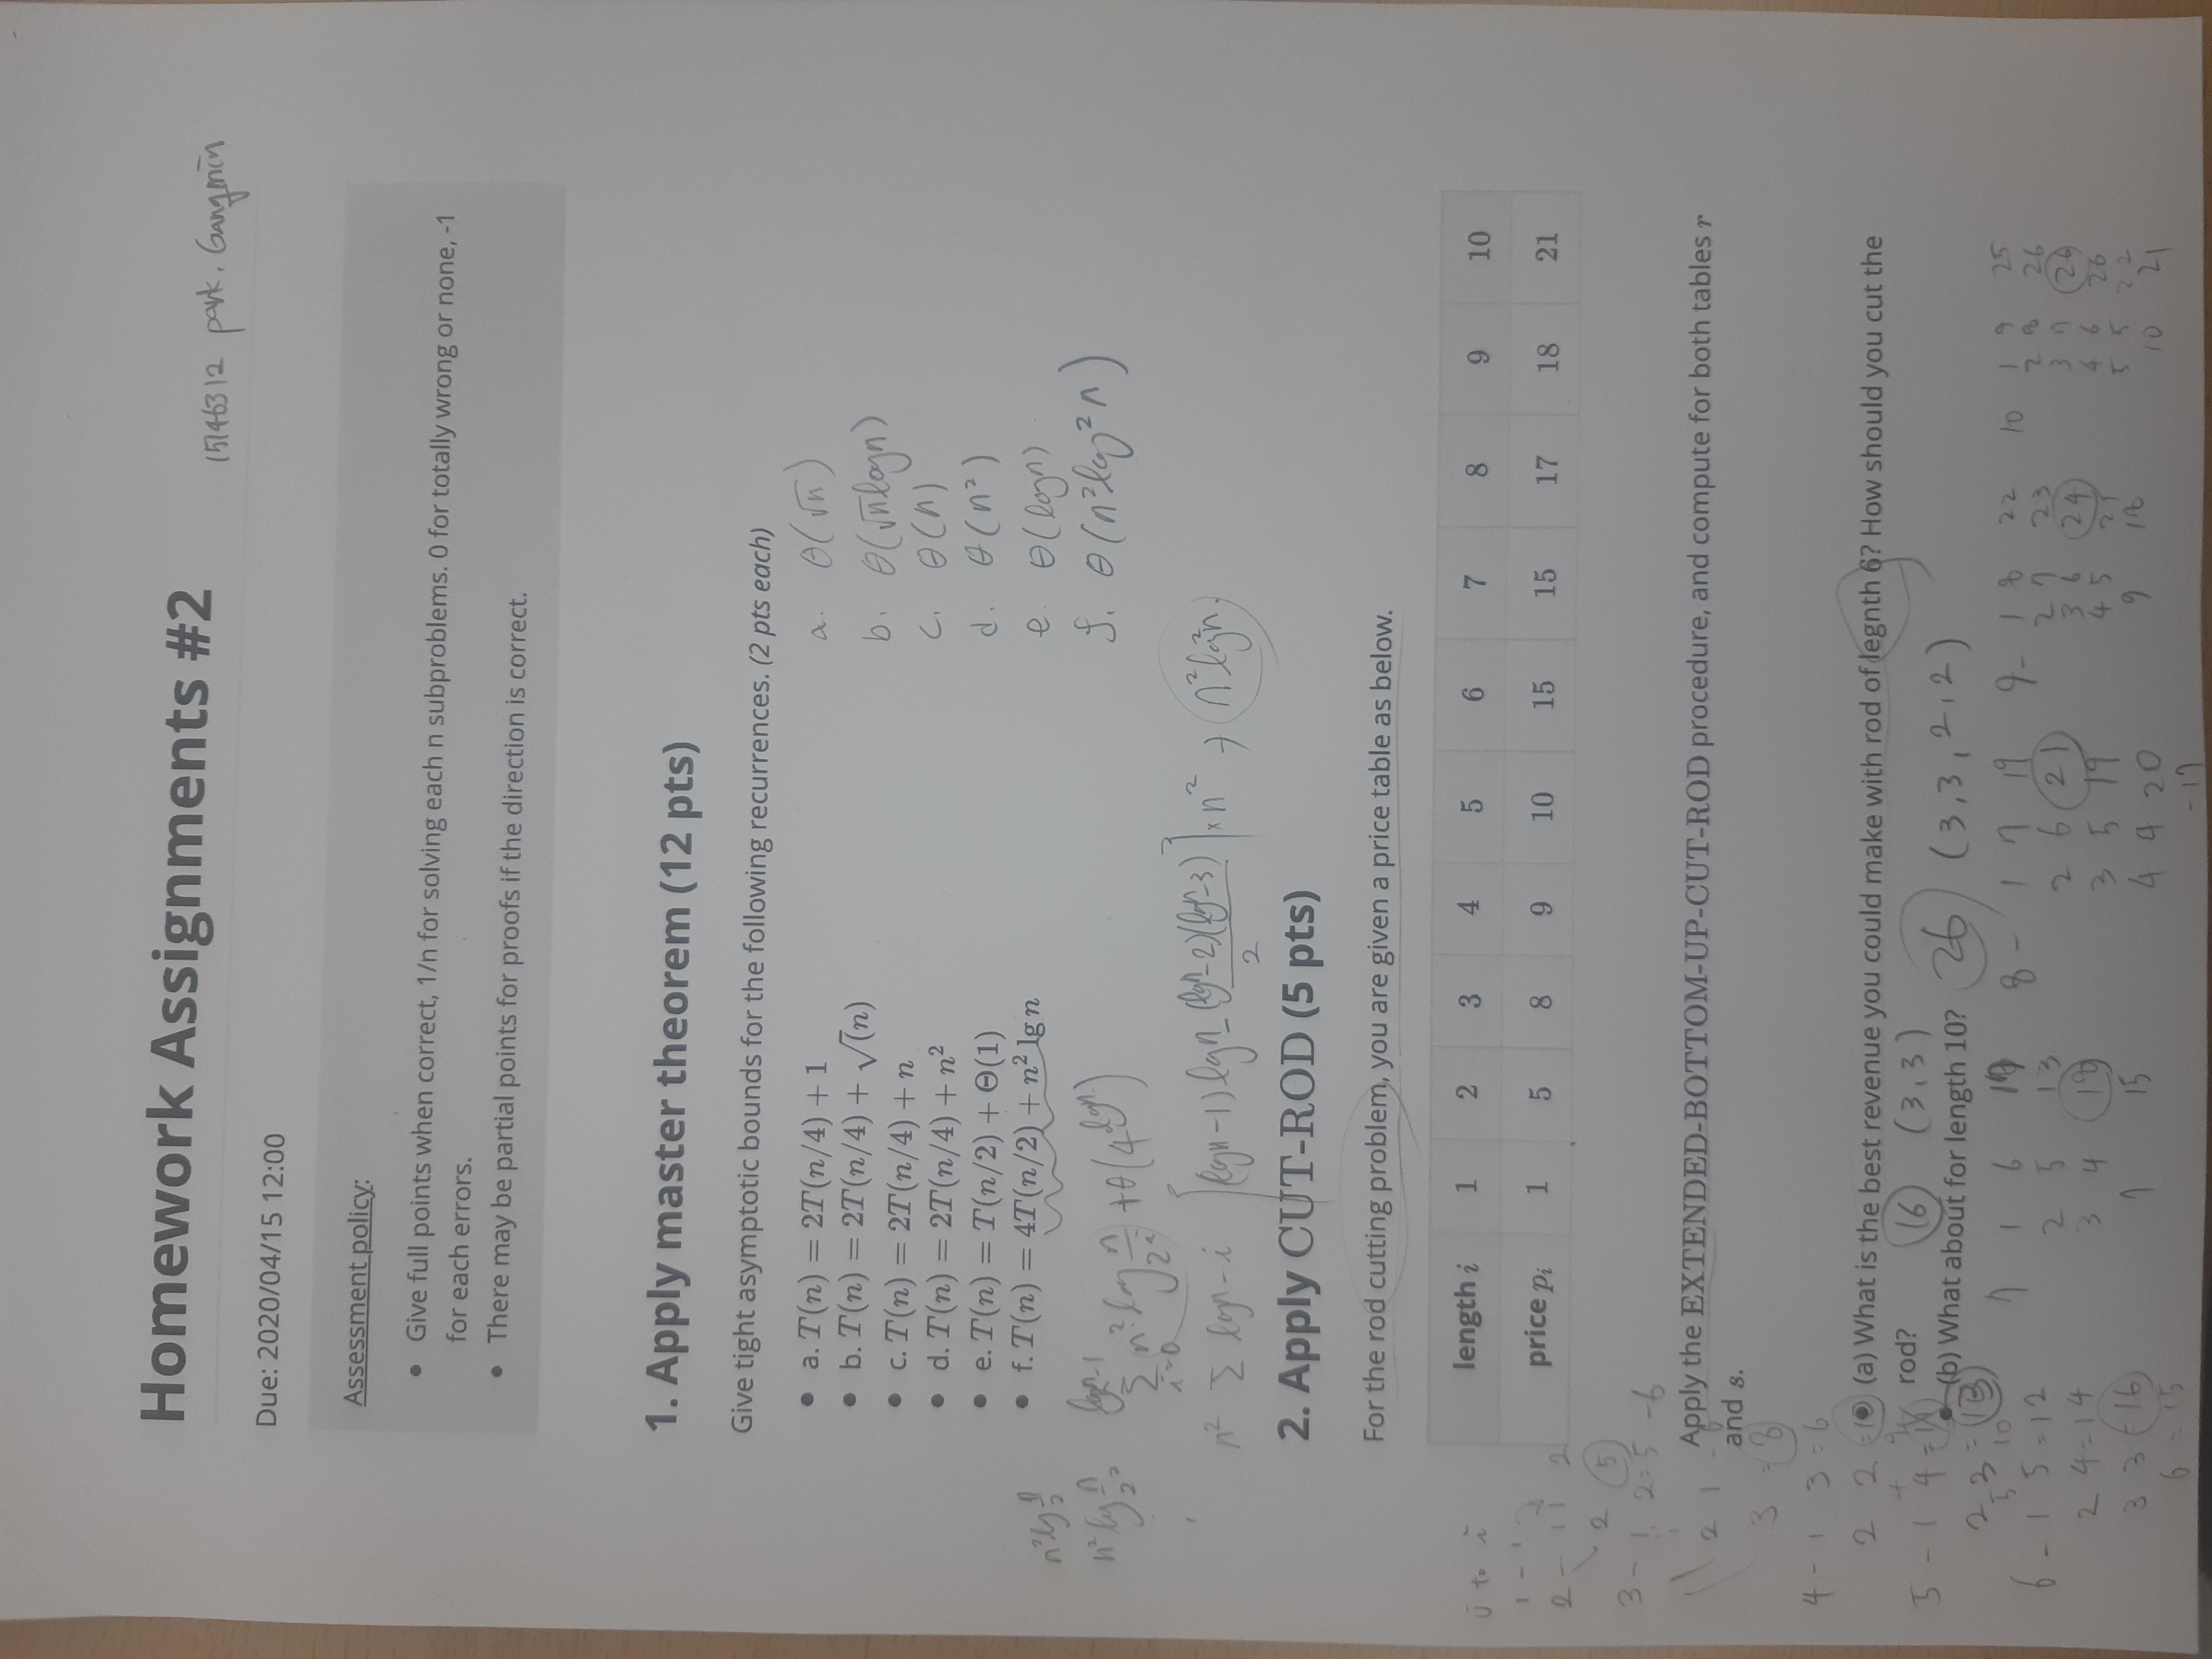 Homework Assignments #2
15146312 park. Gangmin
Due: 2020/04/15 12:00
Assessment policy:
• Give full points when correct, 1/n for solving each n subproblems. 0 for totally wrong or none, -1
for each errors.
• There may be partial points for proofs if the direction is correct.
1. Apply master theorem (12 pts)
Give tight asymptotic bounds for the following recurrences. (2 pts each)
• a. T(n) = 2T(n/4) + 1
a. θ(√n)
• b. T(n) = 2T(n/4) + √(n)
b. θ(√n logn)
• c. T(n) = 2T(n/4) + n
c. θ(n)
• d. T(n) = 2T(n/4) + n²
d. θ(n²)
• e. T(n) = T(n/2) + Θ(1)
e. θ(logn)
• f. T(n) = 4T(n/2) + n² lg n
f. θ(n²log²n)
n²lg n/2
n²lg n/2²
lgn-1
Σ n² log n/2^i + θ(4^lgn)
i=0
n² Σ lgn-i [(lgn-1)lgn - (lgn-2)(lgn-3)/2] × n² → n²lg²n.
2. Apply CUT-ROD (5 pts)
For the rod cutting problem, you are given a price table as below.
length i 1 2 3 4 5 6 7 8 9 10
price pᵢ 1 5 8 9 10 15 15 17 18 21
j to i
1 - 1
2 - 1 1 2
2 5
3 - 1 2=5 -6
Apply the EXTENDED-BOTTOM-UP-CUT-ROD procedure, and compute for both tables r
and s.
2 1 - 6
3 = 8
4 - 1 3 = 6
2 2 = 10
• (a) What is the best revenue you could make with rod of legnth 6? How should you cut the
rod? 16 (3,3)
5 - 1 4 =
• (b) What about for length 10? 26 (3,3,2,2)
2 3 = 13
5 10
6 - 1 5 = 12
2 4 = 14
3 3 = 16
6 = 15
7 1 6 17
2 5 13
3 4
7 15
8 - 1 7 19
2 6 21
3 5 19
4 4 20
- 17
9 - 1 8 22
2 7 23
3 6 24
4 5 21
9 18
10 1 9 25
2 8 26
3 7 26
4 6 26
5 5 22
10 21